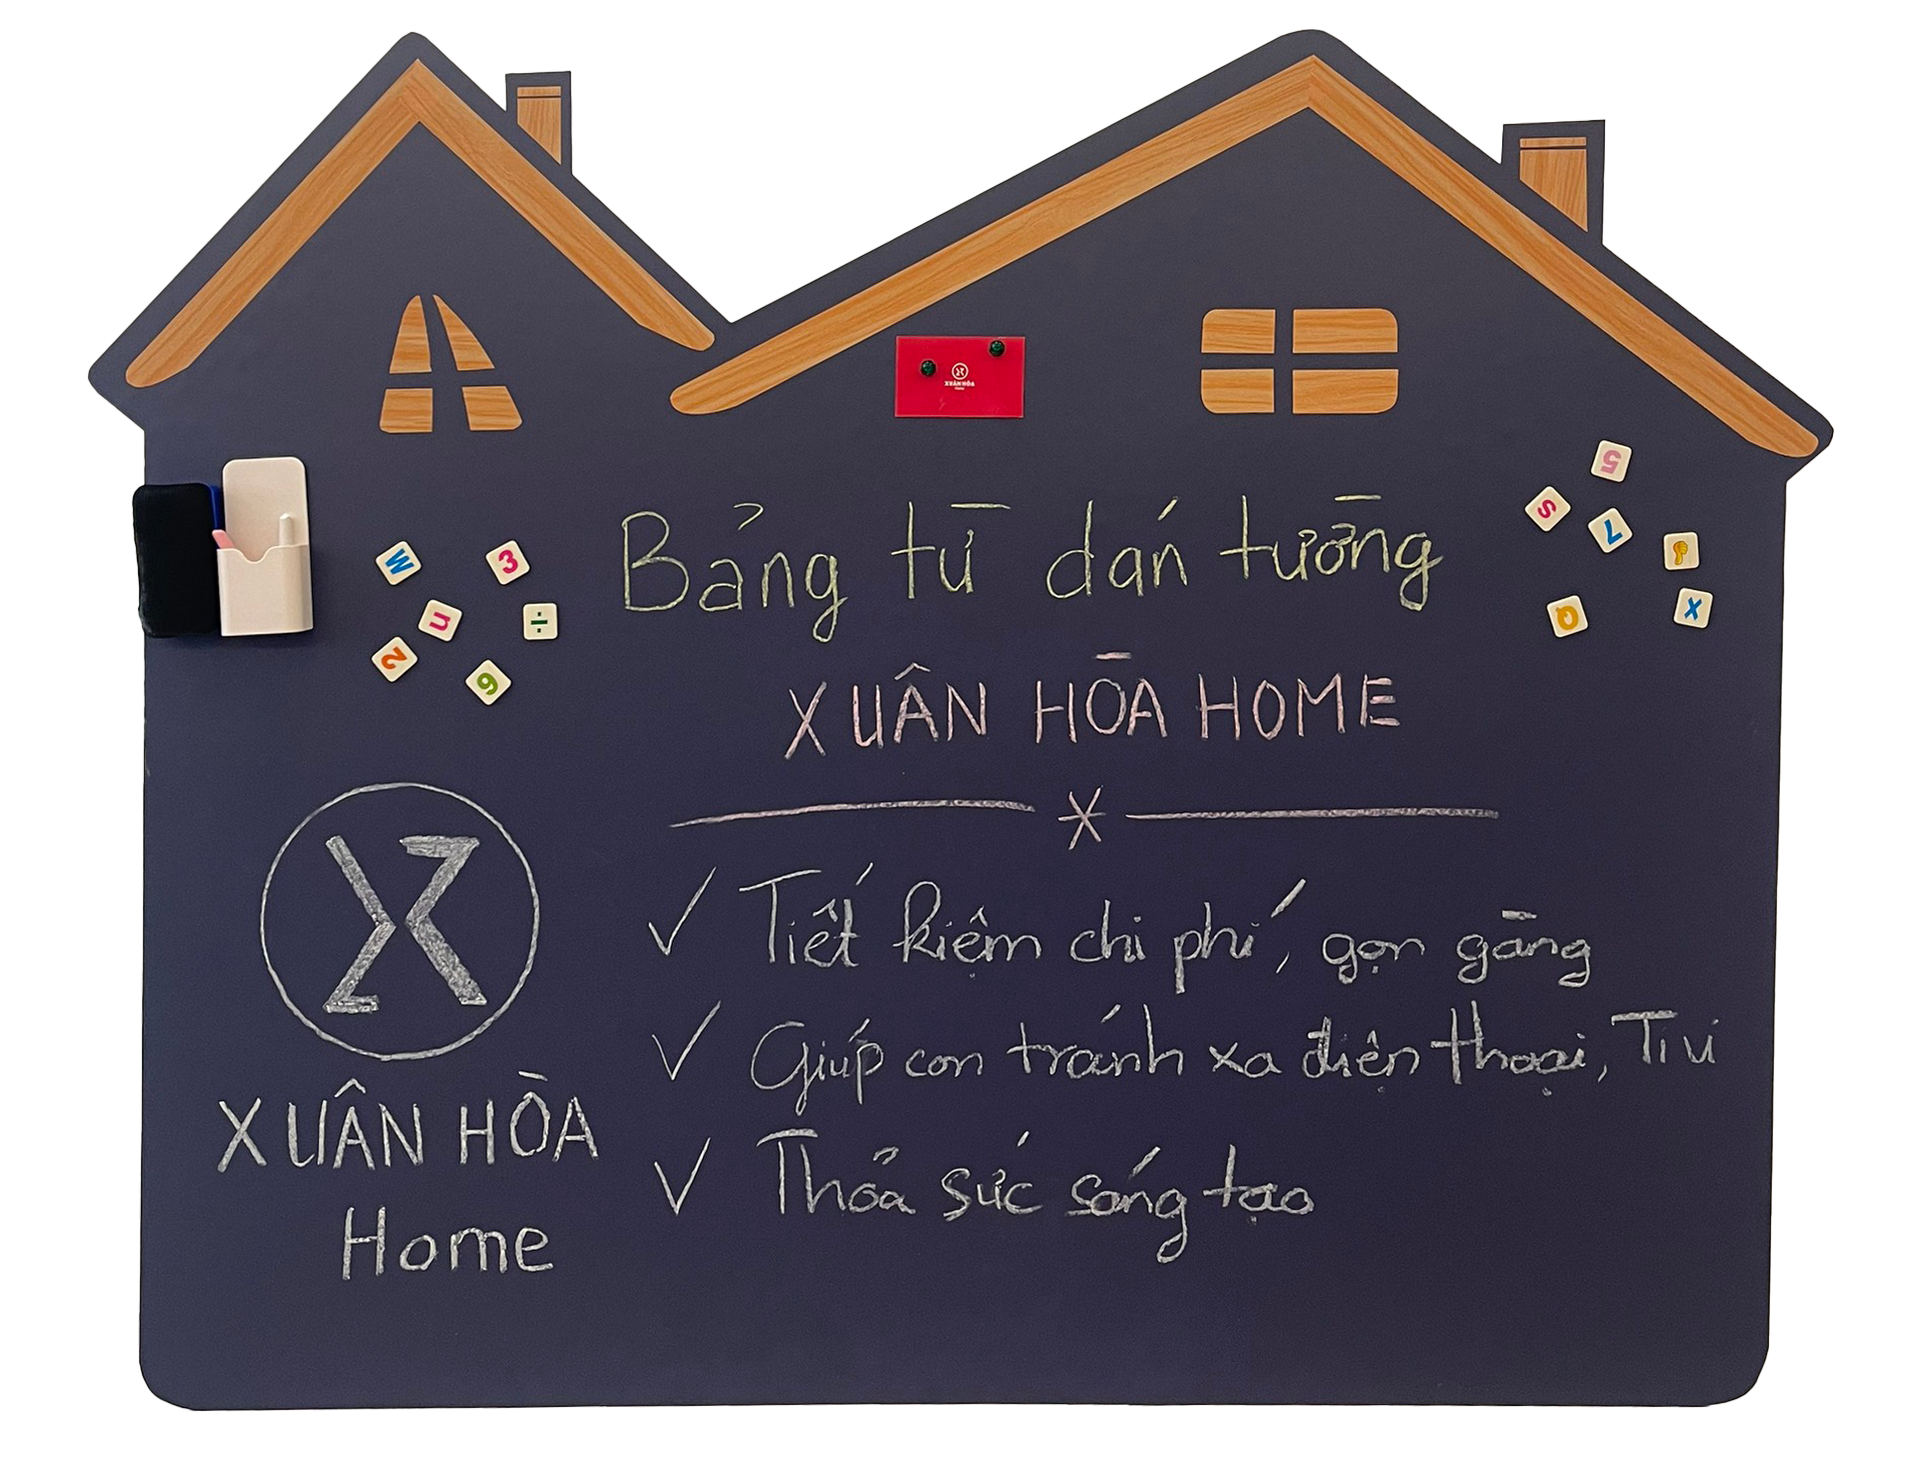 XUÂN HÒA
HOME
Bảng từ dán tường
XUÂN HÒA HOME
✓ Tiết kiệm chi phí, gọn gàng
✓ Giúp con tránh xa điện thoại, Ti vi
✓ Thỏa sức sáng tạo
XUÂN HÒA
Home
W
3
u
÷
2
6
5
S
7
Q
X